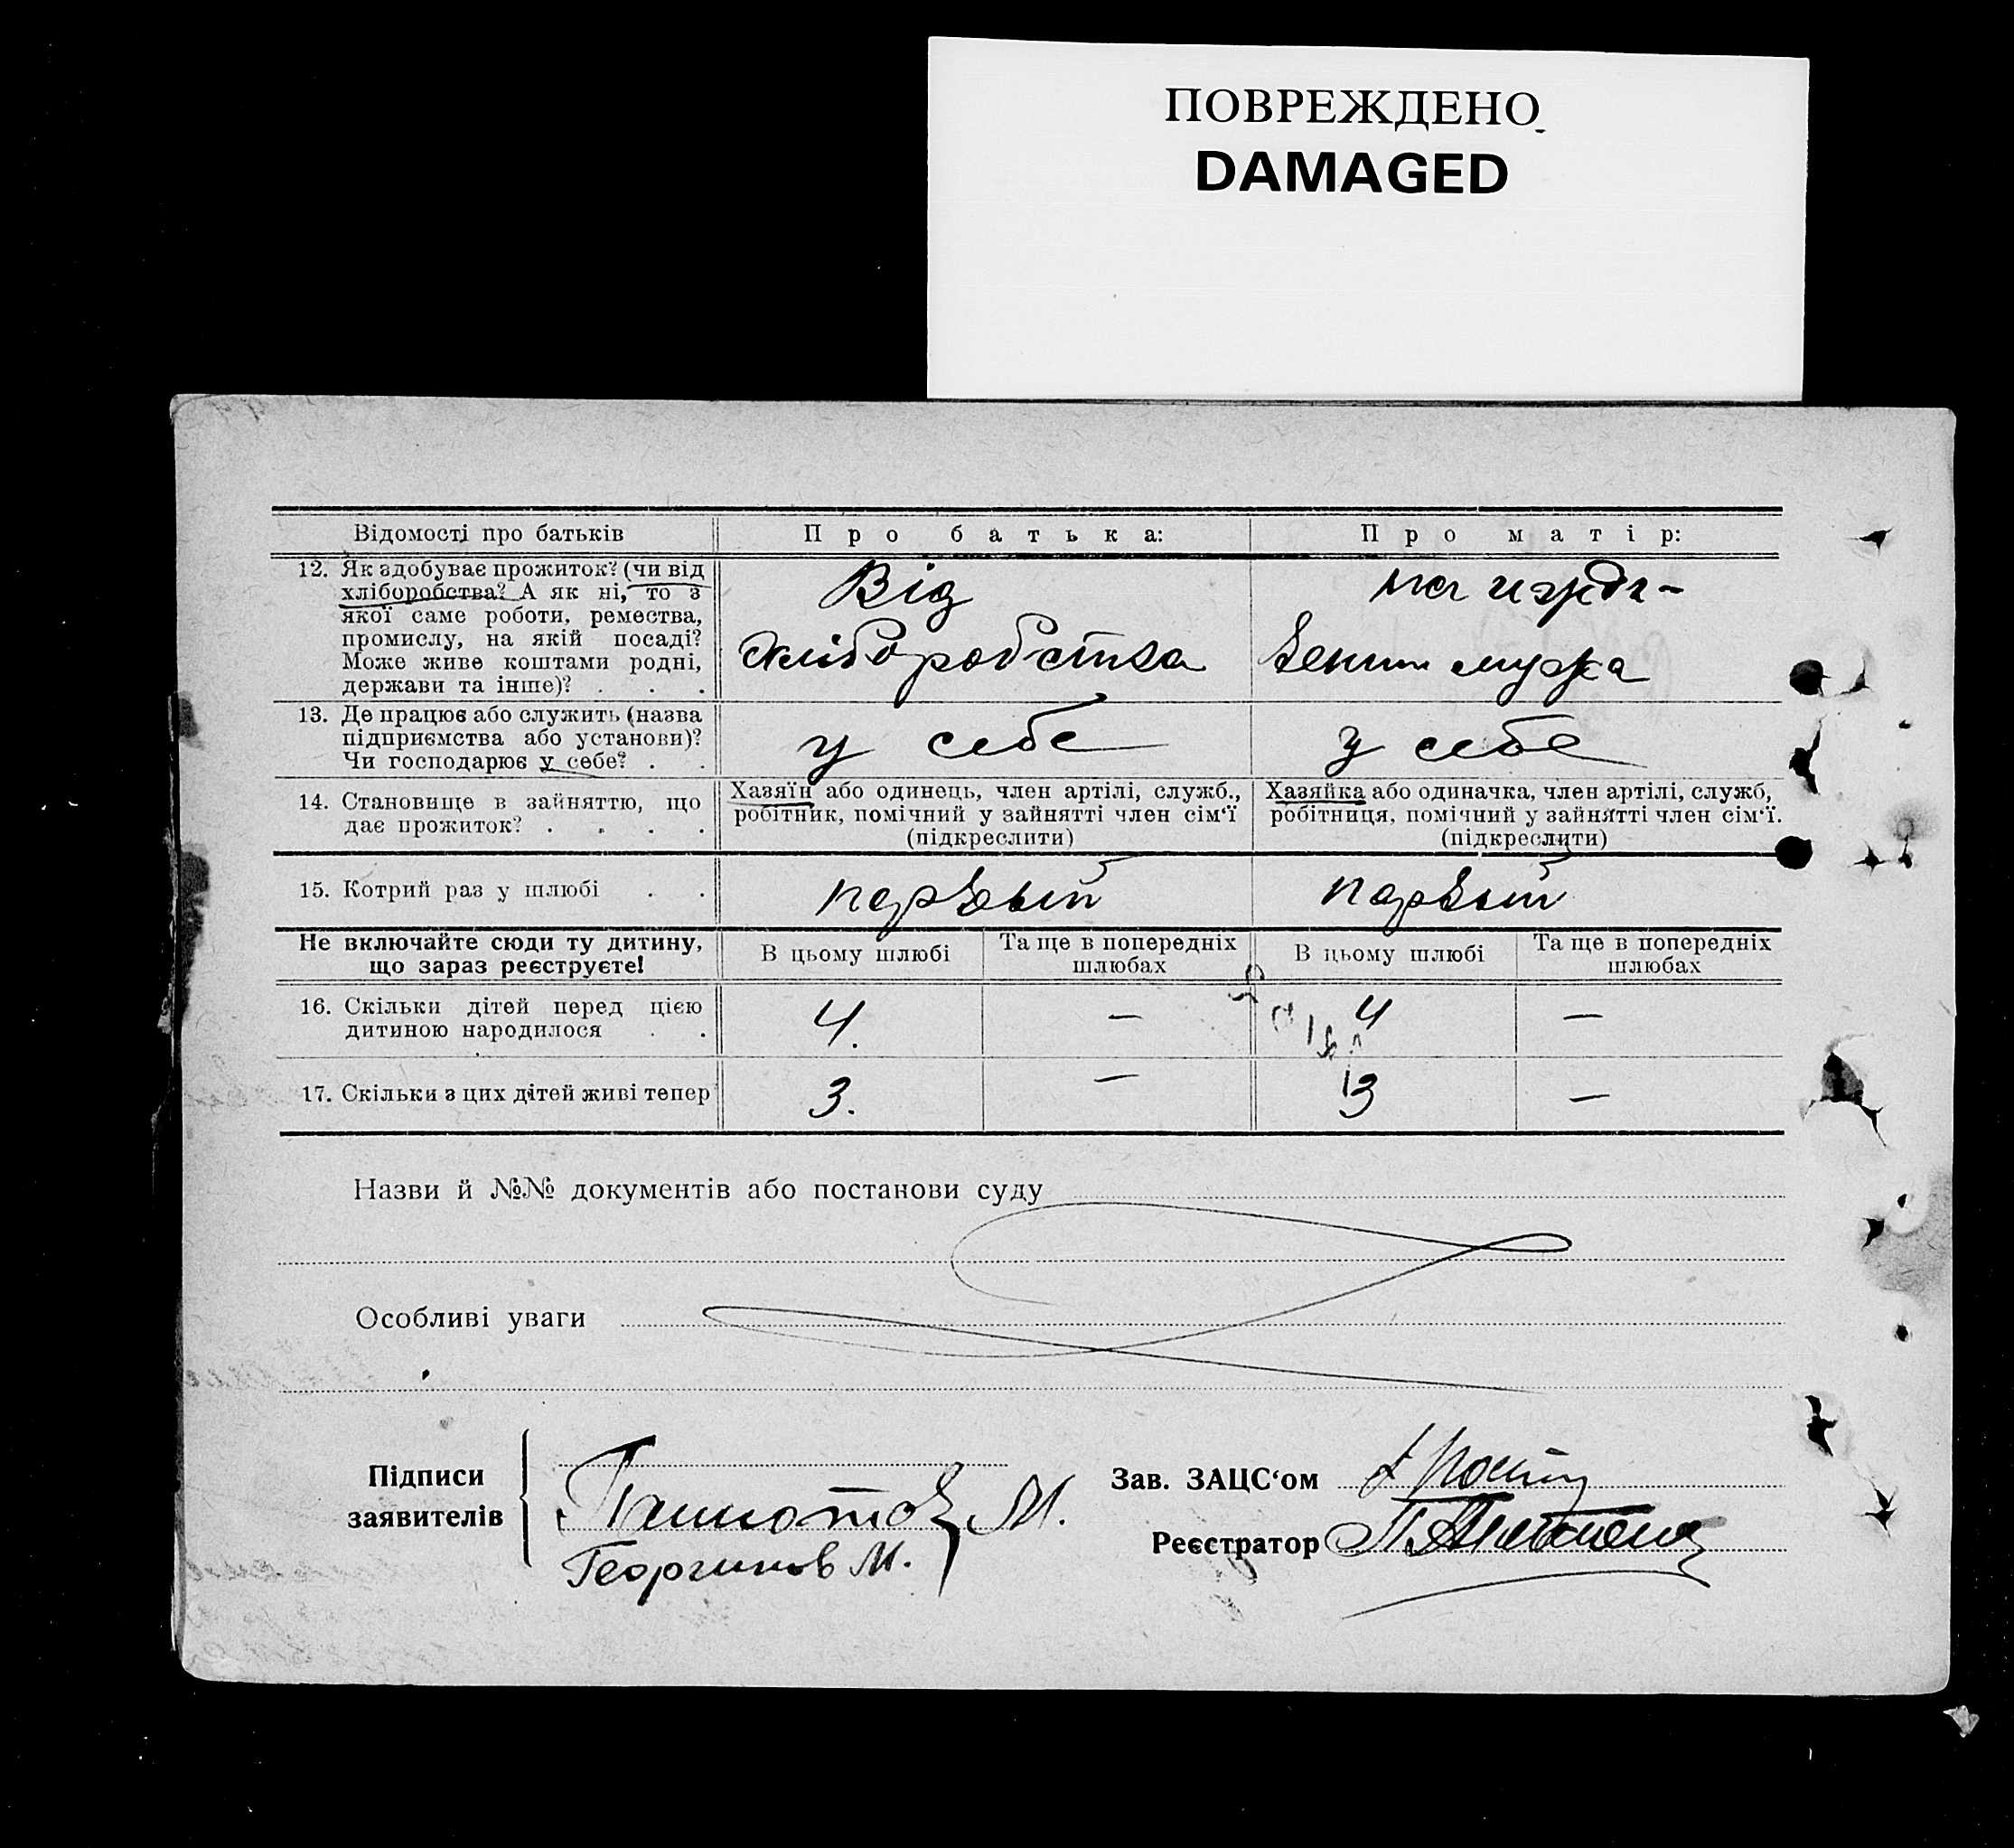 ПОВРЕЖДЕНО
DAMAGED
Відомості про батьків
Про батька:
Про матір:
12. Як здобуває прожиток? (чи від
хліборобства? А як ні, то з
якої саме роботи, ремества,
промислу, на якій посаді?
Може живе коштами родні,
держави та інше)? . . .
Від
хліборобства
на ижди-
вении мужа
13. Де працює або служить (назва
підприємства або установи)?
Чи господарює у себе? . .
у себе
у себе
14. Становище в зайняттю, що
дає прожиток? . . . .
Хазяїн або одинець, член артілі, служб.,
робітник, помічний у зайнятті член сім'ї
(підкреслити)
Хазяйка або одиначка, член артілі, служб,
робітниця, помічний у зайнятті член сім'ї.
(підкреслити)
15. Котрий раз у шлюбі . .
первый
первый
Не включайте сюди ту дитину,
що зараз реєструєте!
В цьому шлюбі
Та ще в попередніх
шлюбах
В цьому шлюбі
Та ще в попередніх
шлюбах
16. Скільки дітей перед цією
дитиною народилося . .
4.
—
4
—
17. Скільки з цих дітей живі тепер
3.
—
3
—
Назви й №№ документів або постанови суду
Особливі уваги
Підписи
заявителів
М.
Георгинов М.
Зав. ЗАЦС'ом
Реєстратор